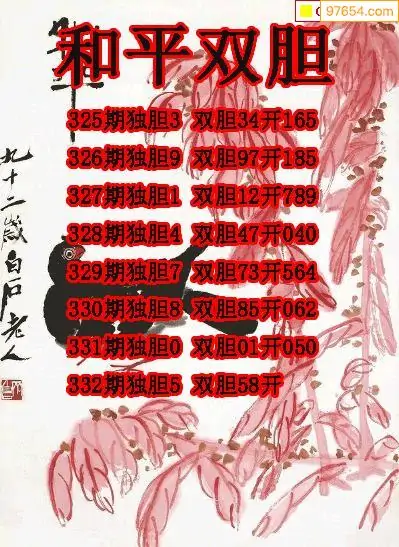 97654.com
和平双胆
325期独胆3 双胆34开165
326期独胆9 双胆97开185
327期独胆1 双胆12开789
328期独胆4 双胆47开040
329期独胆7 双胆73开564
330期独胆8 双胆85开062
331期独胆0 双胆01开050
332期独胆5 双胆58开
和平
九十二岁白石老人